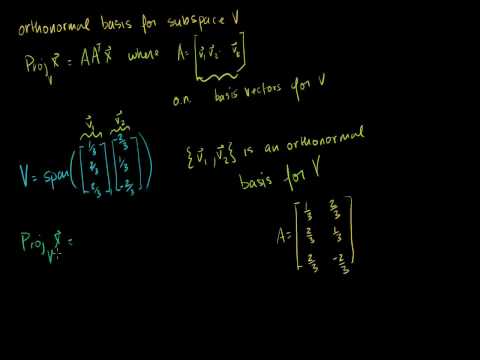 orthonormal basis for subspace V
Proj_V x⃗ = AAᵀx⃗ where A = [v⃗₁ v⃗₂ ⋯ v⃗ₖ]
o.n. basis vectors for V
v⃗₁ v⃗₂
V = span([1/3 2/3 2/3] [-2/3 1/3 -2/3])
{v⃗₁, v⃗₂} is an orthonormal
basis for V
A = [1/3 2/3
2/3 1/3
2/3 -2/3]
Proj_V x⃗ =